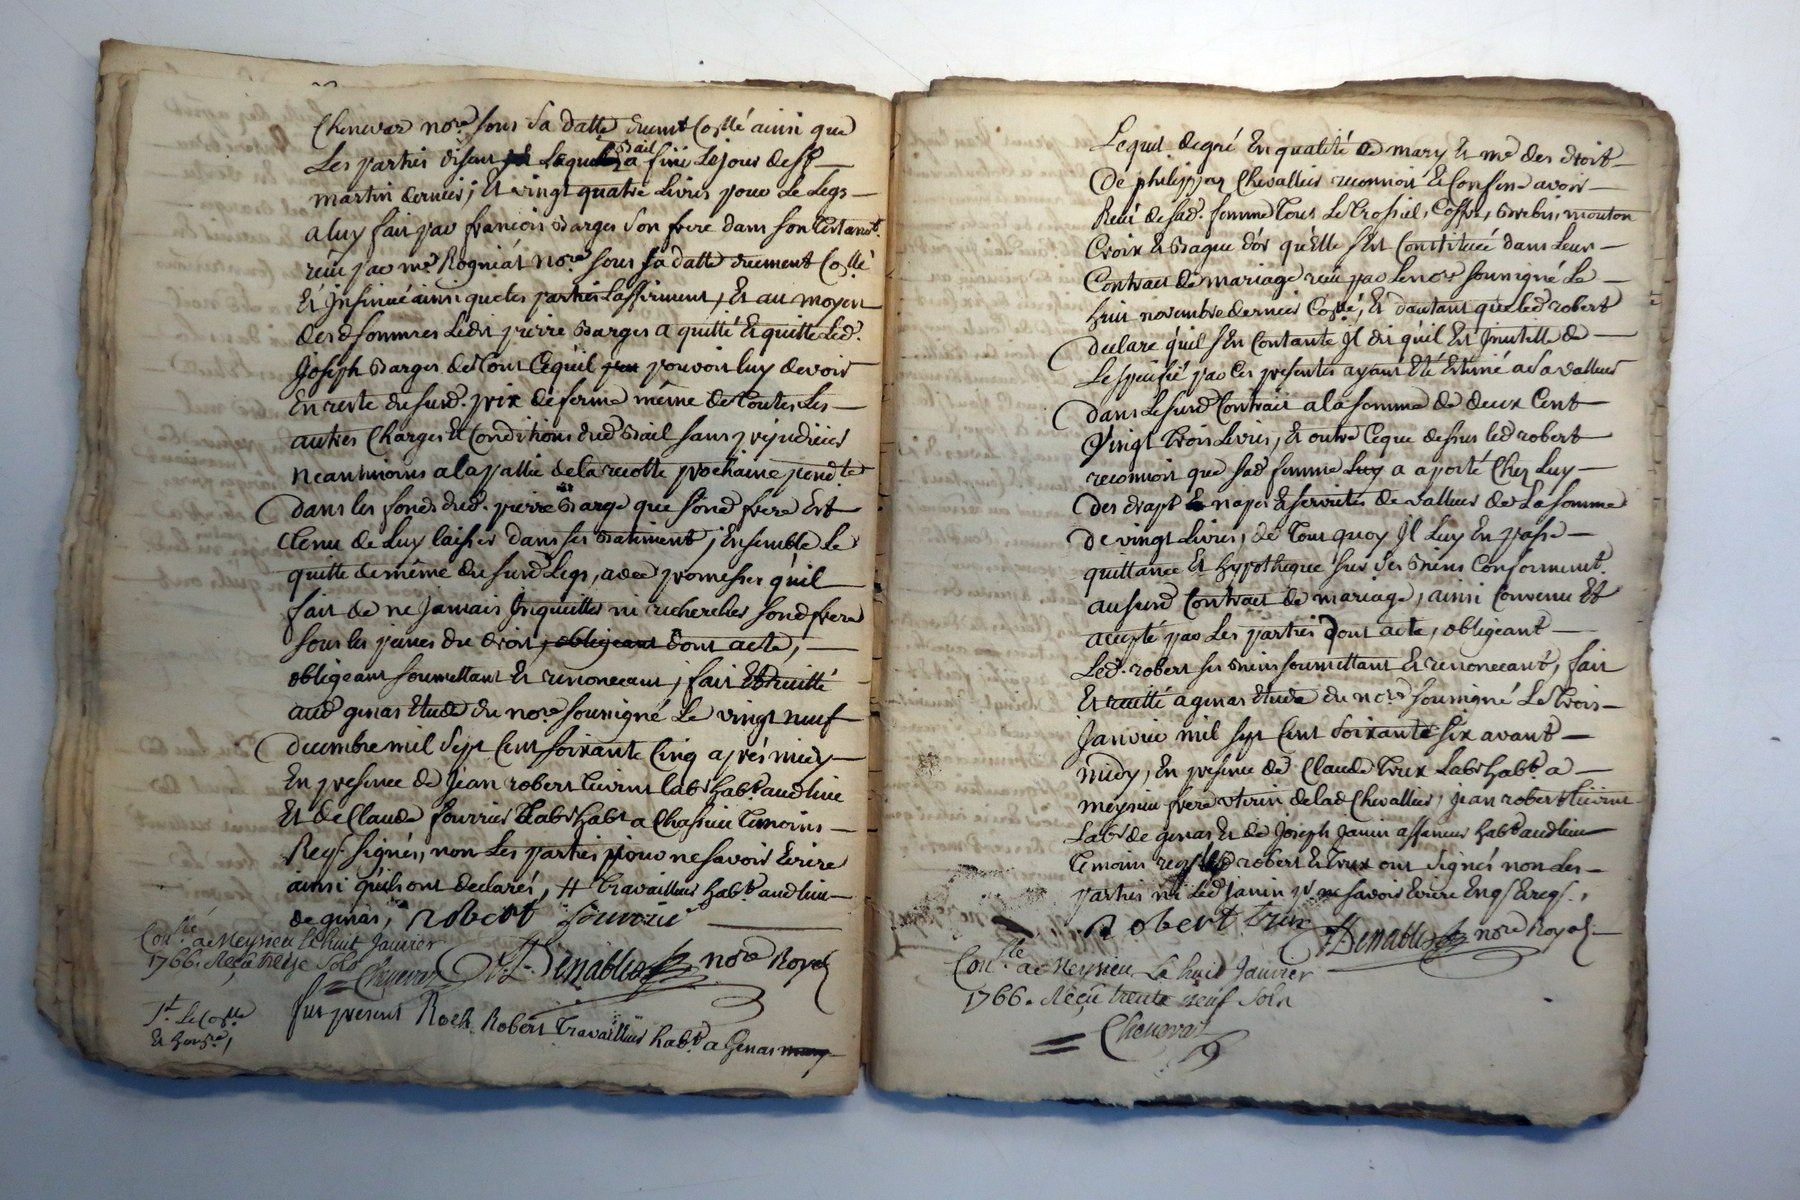 Chenevaz nore. sous sa datte duemt Collé ainsi que
Les parties disent Lequel bail a fini Le jour de st
martin dernier; Et vingt quatre Livres pour Le Legs
a luy fait par françois Barges son frere dans son testamt.
reçu par me Rogniat nore. sous sa datte duement Collé
Et Insinué ainsi que les parties L'affirment, Et au moyen
desd sommes Ledit pierre Barges a quitté Et quitte Led.
Joseph Barges de tout Cequil pouvoit luy devoir
En reste du susd. prix de ferme même de toutes Les
autres Charges Et Conditions dud Bail sans prejudicier
neantmoins a la de la recolte prochaine pendte
Dans les fonds dud. pierre Barge que sond frere Est
tenu de Luy laisser dans ses Batiment; Ensemble Le
quitte de même du susd Legs, avec promesses qu'il
fait de ne Jamais Inquietter ni rechercher sond frere
sous les peines du droit, obligeant dont acte,
obligeant soumettant Et renonceant, fait Et recitté
aud genas Etude du nore. soussigné Le vingt neuf
decembre mil Sept Cent soixante Cinq après midy
En presence de Jean robert labr habt. aud lieu
Et de Claude fourrier Labr habt a Chassieu temoins
Reqs. signés, non Les parties pour ne savoir Ecrire
ainsi qu'ils ont declarés, # travailleur habt aud lieu
de genas,
robert fourrié
Conllé a Meysieu le huit Janvier
1766. Reçu treize Sols
Chenevaz
Denable nore Royal
Ft. Le Collé
Et
fut present Roch Robert Travailleur habt. a Genas
Lequel de gré En qualité de mary Et me des droit
De philippaz Chevallier reconnoit Et Confesse avoir
Reçu de sad. femme tous Le trossel, Coffre, Brebis, mouton
Croix Et Bague d'or qu'Elle s'est Constituée dans Leur
Contract de mariage reçu par Le nore soussigné Le
huit novembre dernier Collé, Et d'autant que led robert
declare qu'il s'en Contante Il dit qu'il Est Inutille de
Le specifié par Ces presentes ayant Eté Estimé a sa valleur
dans Le susd Contrait a la somme de deux Cent
Vingt trois Livres, Et outre Ceque dessus led robert
reconnoit que sad femme Luy a aporté Chez Luy
Des drapt napes Et serviettes de valleur de La somme
De vingt Livres, de tout quoy Il Luy En passe
quittance Et hypotheque sur ses Biens Conformemt.
au susd Contract de mariage, ainsi Convenu Et
accepté par Les parties dont acte, obligeant
Led. robert ses Biens soumettant Et renonceant, fait
Et recitté a genas Etude du nore soussigné Le trois
Janvier mil sept Cent Soixante Six avant
midy, En presence de Claude trux Labr habt. a
meysieu frere uterin de lad Chevallier, jean robert
Labr de genas Et de Joseph Janin affaneur habt aud lieu
temoin reqs Led robert Et trux ont signés non Les
parties ni Led Janin pr ne savoir Ecrire Enqs Et reqs.
Robert trux
Denable nore Royal
Conllé a Meysieu Le huit Janvier
1766. Reçu trente neuf Sols
Chenevaz